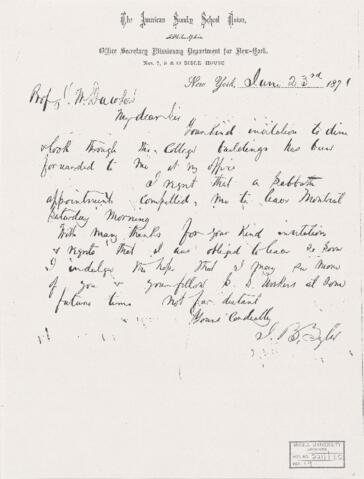 The American Sunday School Union,
Philadelphia
Office Secretary Missionary Department for New-York.
Nos. 7, 8 & 9 BIBLE HOUSE
New York, June 23rd 1871
Prof J. W. Dawson
My dear Sir
Your kind invitation to dine
& look through the College buildings has been
forwarded to me at my office
I regret that a Sabbath
appointment compelled me to leave Montreal
Saturday Morning
With many thanks for your kind invitation
& regrets that I was obliged to leave so soon
I indulge the hope that I may see more
of you & your fellow S. S. Workers at some
future time not far distant
Yours Cordially
McGILL UNIVERSITY
ARCHIVES
ACC. NO.
REF.